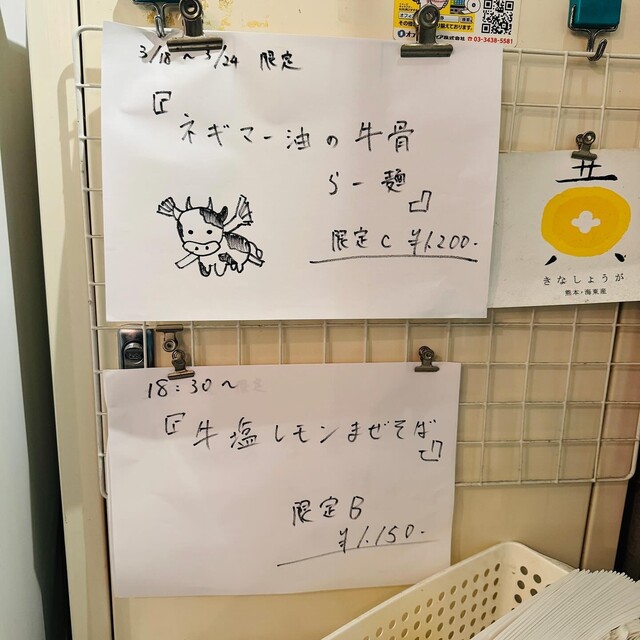 3/18～3/24 限定
『ネギマー油の牛骨
らー麺』
限定C ¥1.200.-
03-3438-5581
きなしょうが
熊本・海東産
18:30～
『牛塩レモンまぜそば』
限定B
¥1.150.-